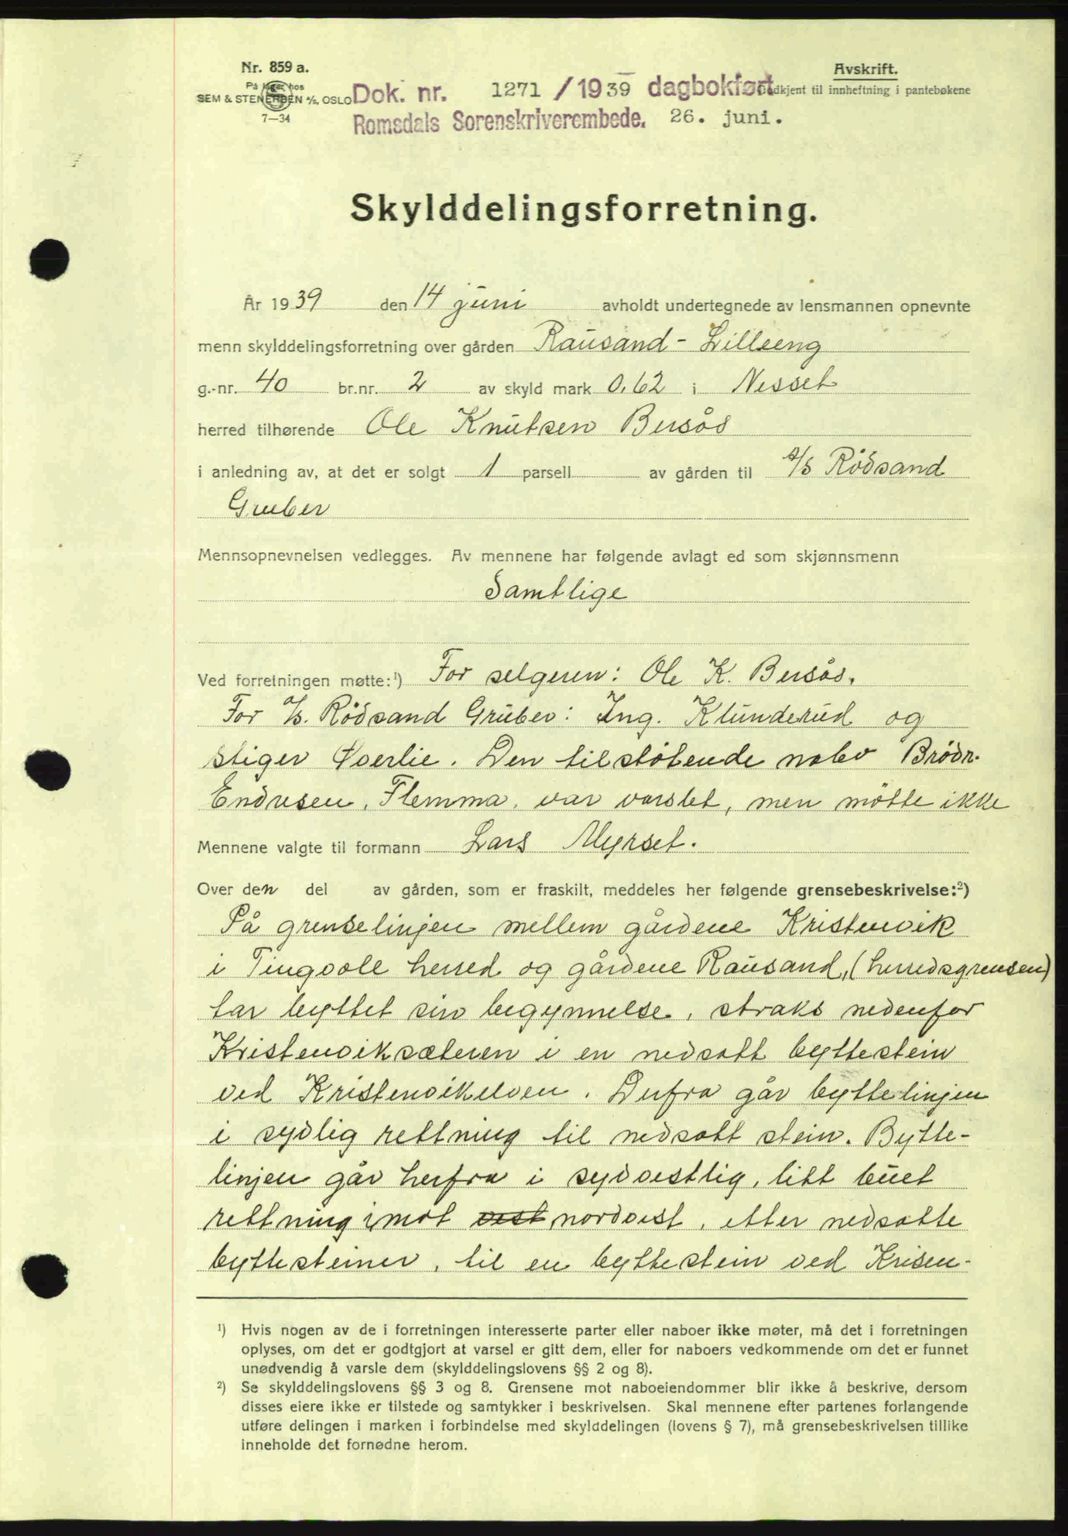 Nr. 859 a.
På lager hos
SEM & STENERSEN A/S, OSLO
7—34
Avskrift.
Godkjent til innheftning i pantebøkene
Dok. nr. 1271 /1939 dagbokført
Romsdals Sorenskriverembede. 26. juni.
Skylddelingsforretning.
År 1939 den 14 juni avholdt undertegnede av lensmannen opnevnte
menn skylddelingsforretning over gården Rausand - Lilleeng
g.-nr. 40 br.nr. 2 av skyld mark 0,62 i Nesset
herred tilhørende Ole Knutsen Bersås
i anledning av, at det er solgt 1 parsell av gården til A/S Rödsand
Gruber
Mennsopnevnelsen vedlegges. Av mennene har følgende avlagt ed som skjønnsmenn
Samtlige
Ved forretningen møtte:¹) For selgeren: Ole K. Bersås.
For A/S. Rödsand Gruber: Ing. Klunderud og
stiger Øverlie. Den tilstötende nabo Brödr.
Endresen, Flemma, var varslet, men mötte ikke
Mennene valgte til formann Lars Myrset.
Over den del av gården, som er fraskilt, meddeles her følgende grensebeskrivelse:²)
På grenselinjen mellem gårdene Kristenvik
i Tingvoll herred og gårdene Rausand, (herredsgrensen)
tar byttet sin begynnelse, straks nedenfor
Kristenviksæteren i en nedsatt byttestein
ved Kristenvikelven. Derfra går byttelinjen
i sydlig rettning til nedsatt stein. Bytte-
linjen går herfra i sydvestlig, litt buet
rettning imot vest nordvest, etter nedsatte
byttesteiner, til en byttestein ved Krisen-
¹) Hvis nogen av de i forretningen interesserte parter eller naboer ikke møter, må det i forretningen
oplyses, om det er godtgjort at varsel er gitt dem, eller for naboers vedkommende om det er funnet
unødvendig å varsle dem (skylddelingslovens §§ 2 og 8).
²) Se skylddelingslovens §§ 3 og 8. Grensene mot naboeiendommer blir ikke å beskrive, dersom
disses eiere ikke er tilstede og samtykker i beskrivelsen. Skal mennene efter partenes forlangende
utføre delingen i marken i forbindelse med skylddelingen (lovens § 7), må grensebeskrivelsen tillike
inneholde det fornødne herom.